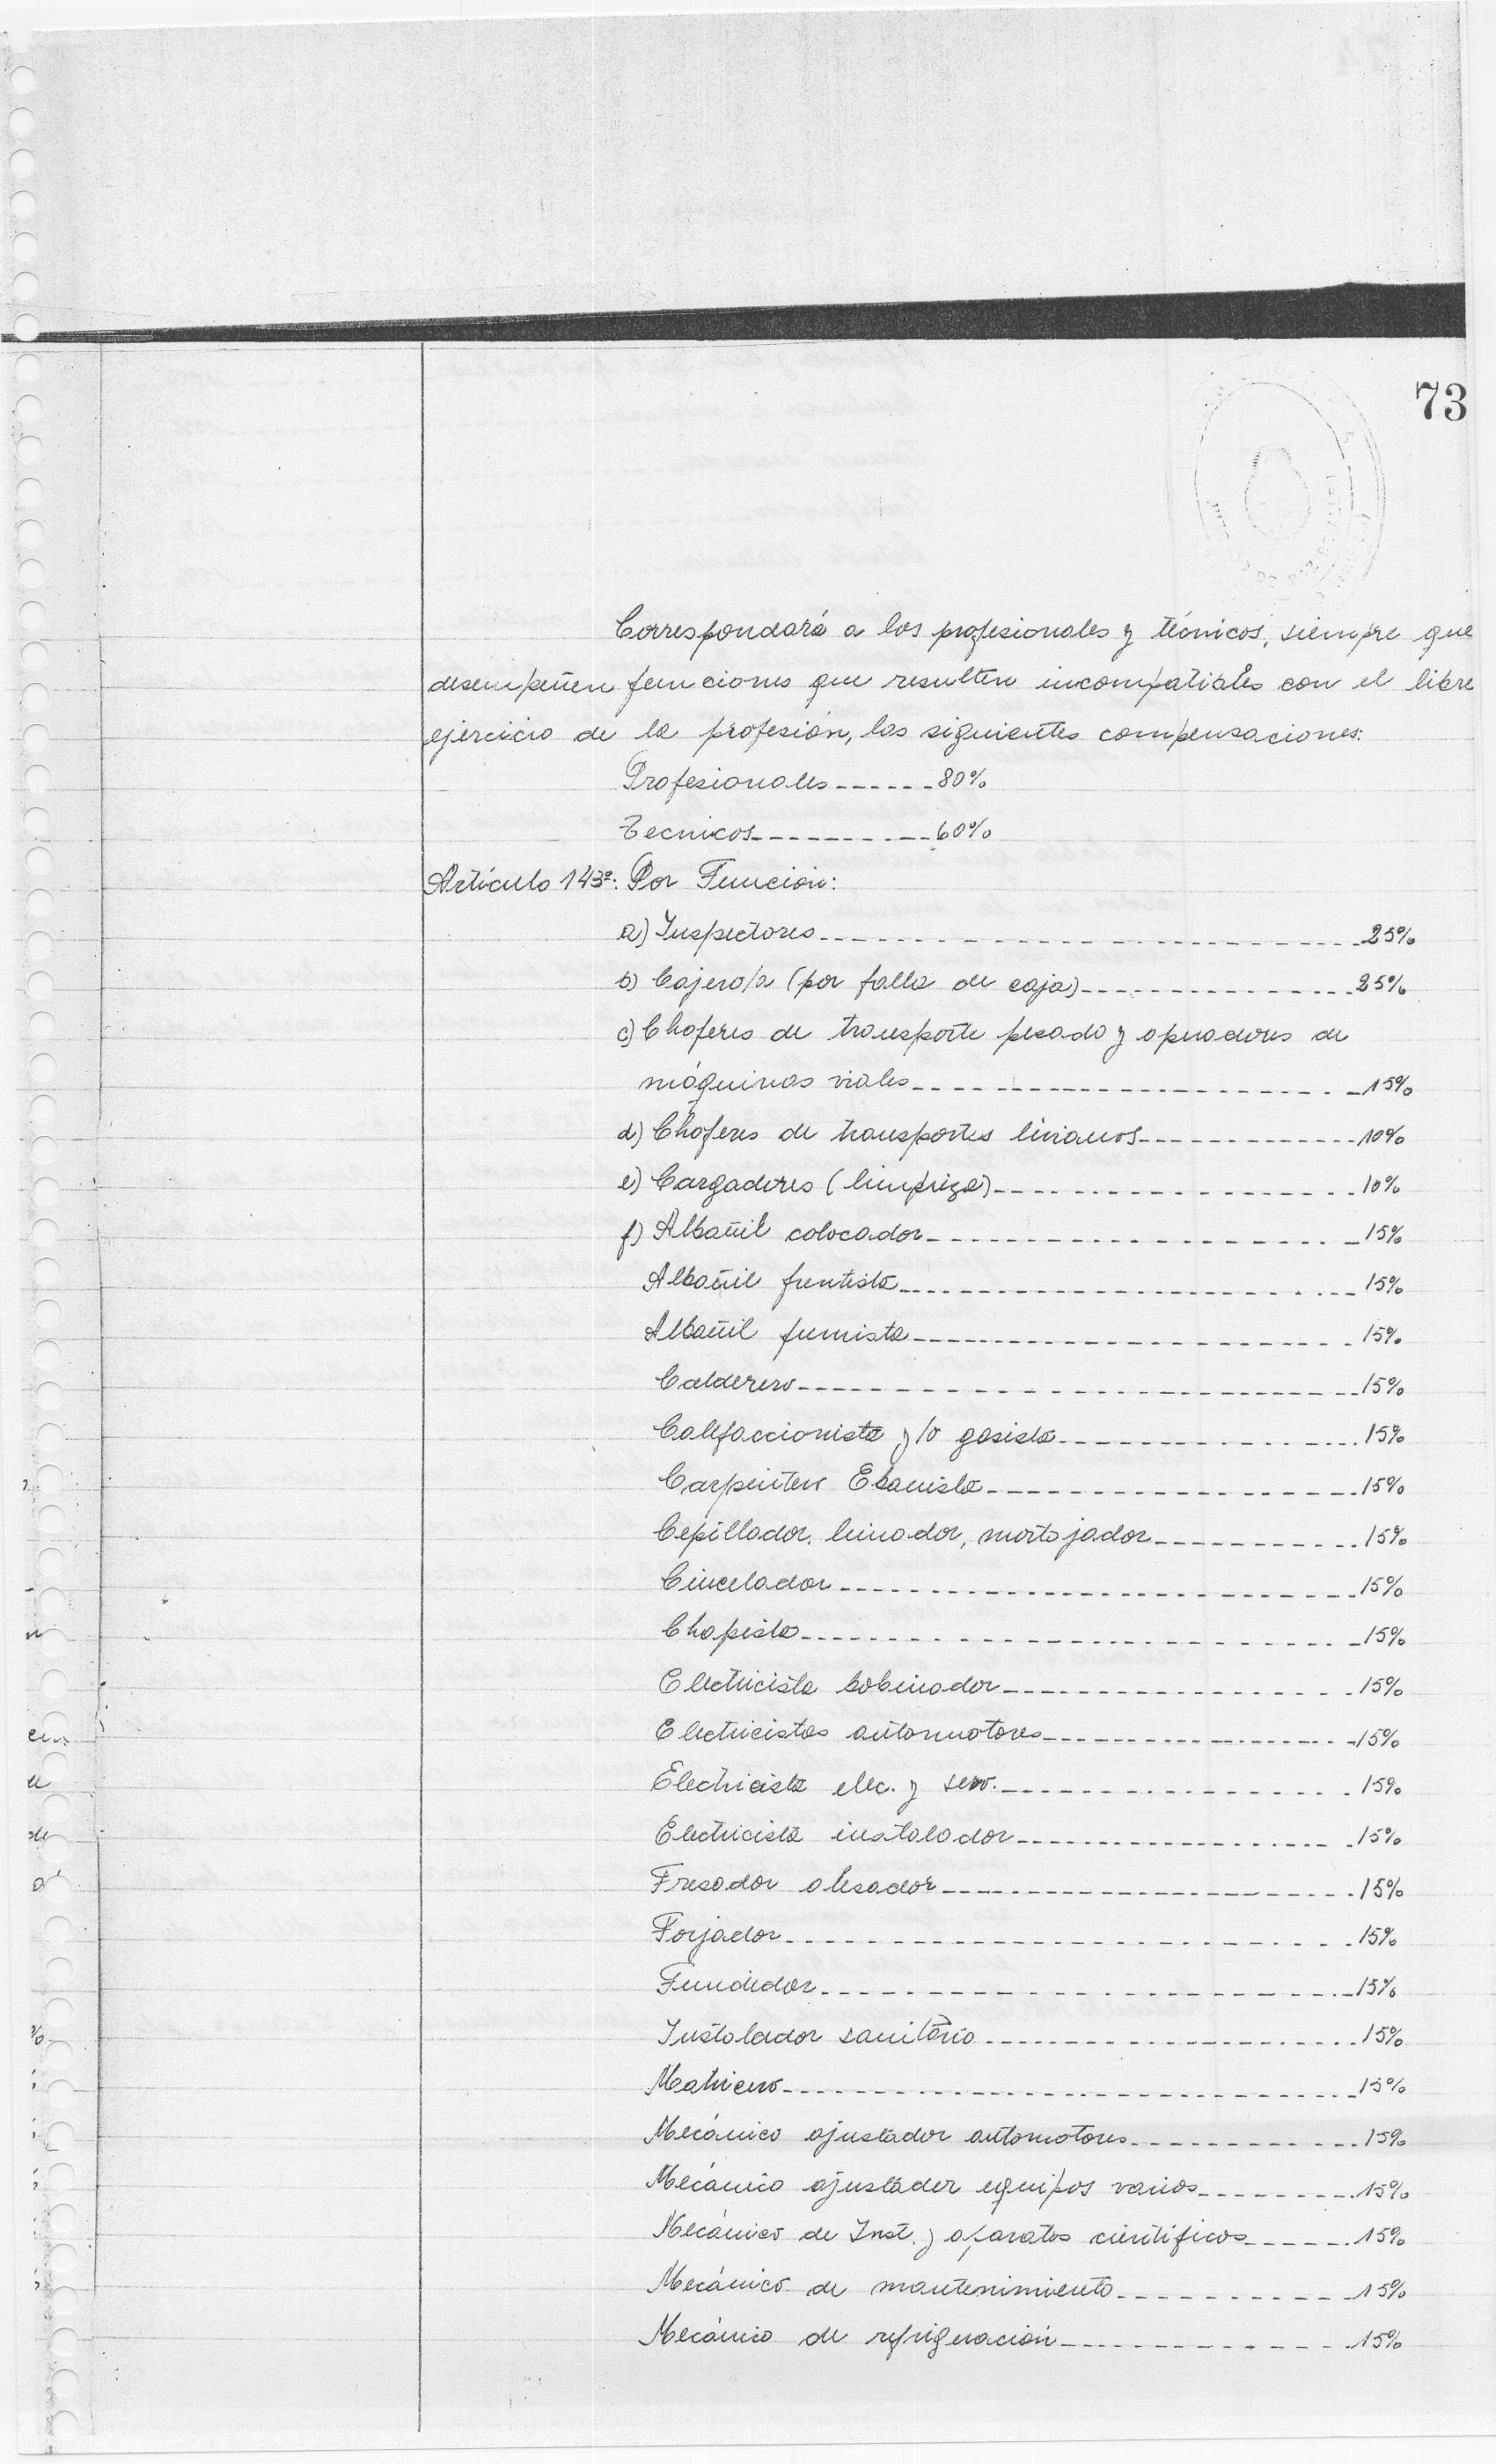 73
Corresponderá a los profesionales y técnicos, siempre que
desempeñen funciones que resulten incompatibles con el libre
ejercicio de la profesión, las siguientes compensaciones:
Profesionales------80%
Tecnicos----------60%
Artículo 143º: Por Función:
a) Inspectores----------25%
b) Cajero/a (por falla de caja)----------25%
c) Choferes de transporte pesado y operadores de
máquinas viales----------15%
d) Choferes de transportes livianos----------10%
e) Cargadores (limpieza)----------10%
f) Albañil colocador----------15%
Albañil frentista----------15%
Albañil fumista----------15%
Calderero----------15%
Calefaccionista y/o gasista----------15%
Carpintero Ebanista----------15%
Cepillador, limador, mortajador----------15%
Cincelador----------15%
Chapista----------15%
Electricista bobinador----------15%
Electricistas automotores----------15%
Electricista elec. y serv.----------15%
Electricista instalador----------15%
Fresador alesador----------15%
Forjador----------15%
Fundidor----------15%
Instalador sanitario----------15%
Matricero----------15%
Mecánico ajustador automotores----------15%
Mecánico ajustador equipos varios----------15%
Mecánico de Inst. y aparatos científicos------15%
Mecánico de mantenimiento----------15%
Mecánico de refrigeración----------15%